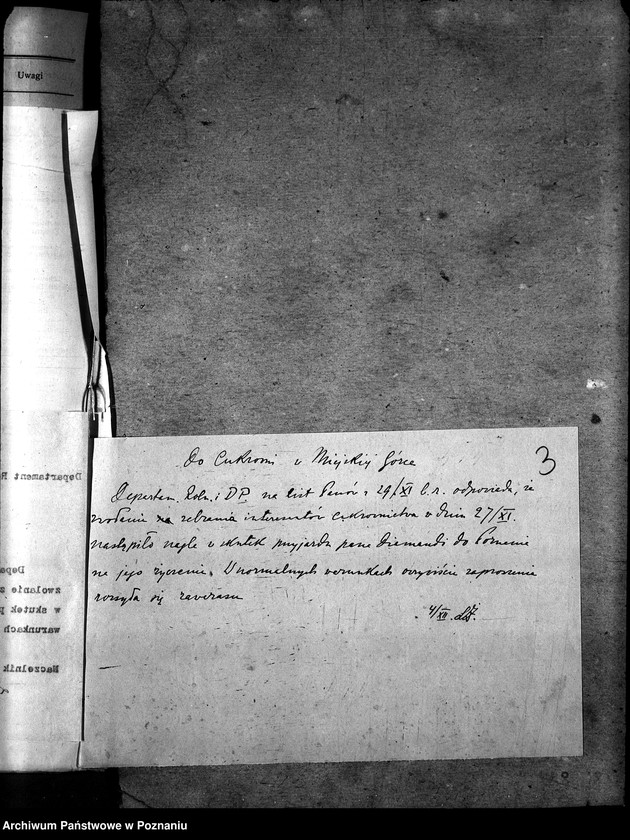 Uwagi
3
Do Cukrowni w Miejskiej Górce
Departam. Roln. i DP. na list Panów z 29/XI b.r. odpowiada, że
zwołanie na zebranie interesentów cukrownictwa w dniu 27/XI.
nastąpiło nagle w skutek przyjazdu pana Diamanda do Poznania
na jego życzenie. W normalnych warunkach oczywiście zaproszenia
rozsyła się zawczasu
4/XII.
Departament R
Depa
zwołanie z
w skutek p
warunkach
Naczelnik
Archiwum Państwowe w Poznaniu